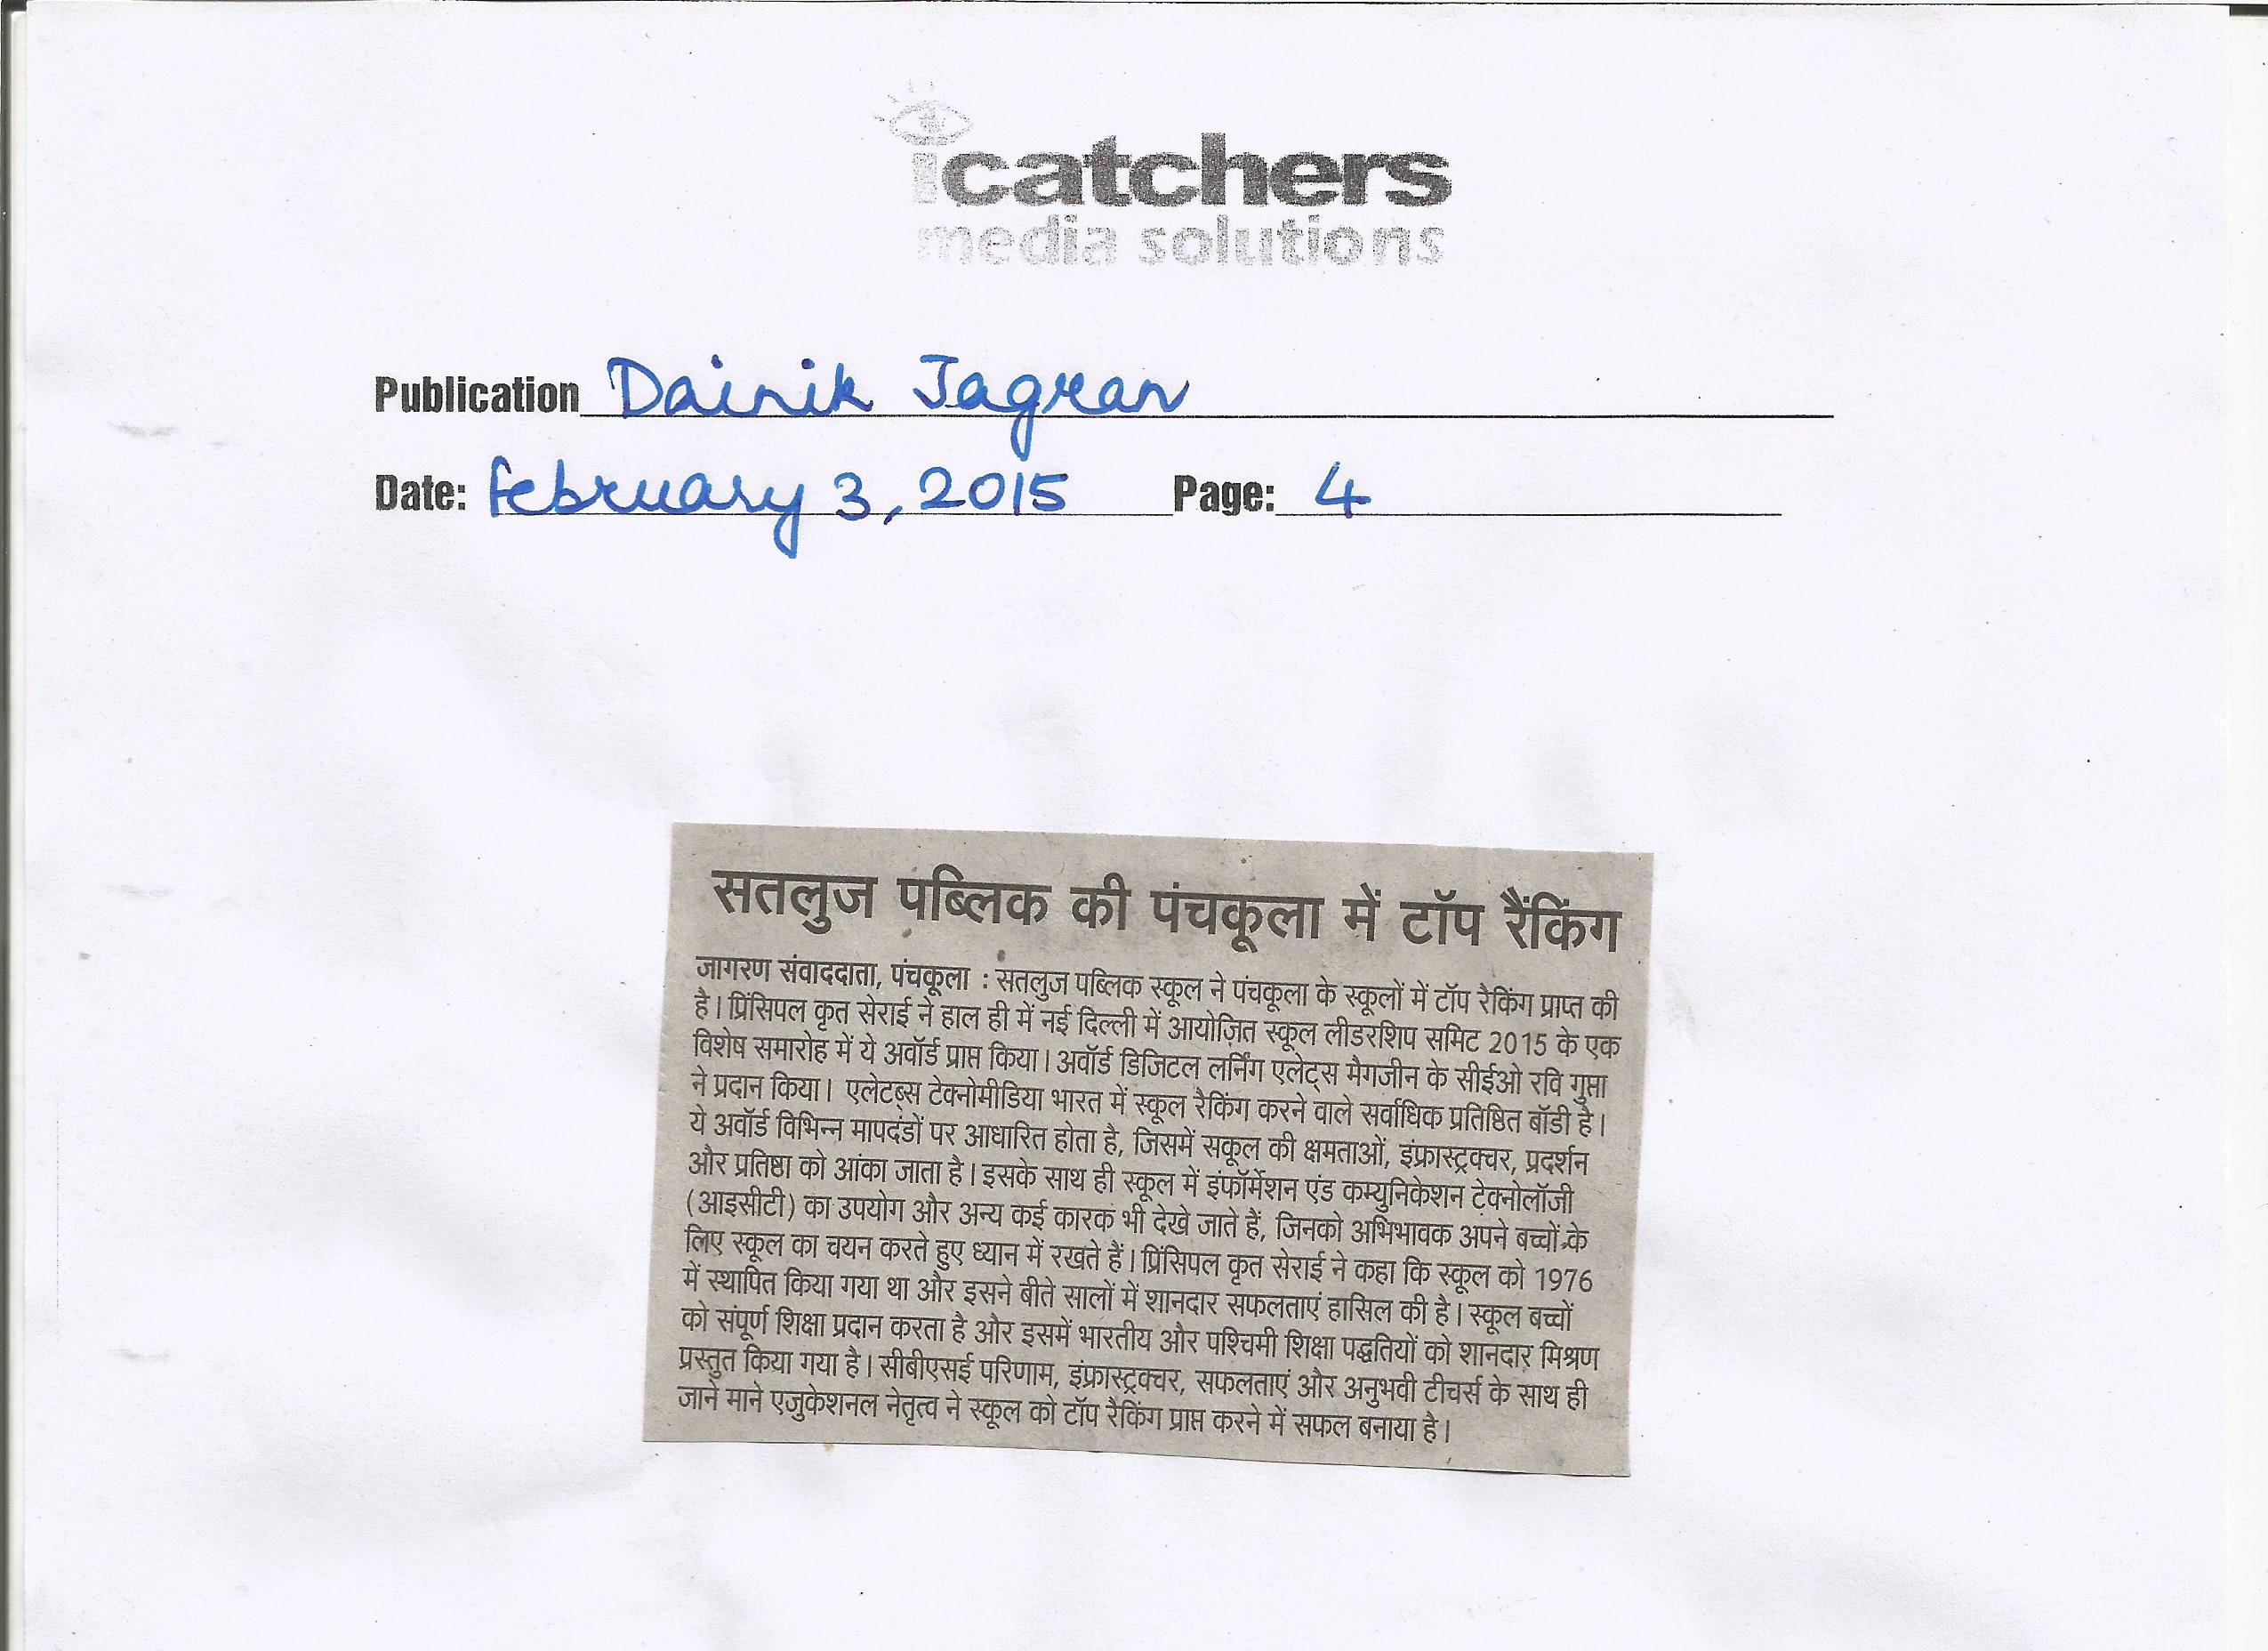 icatchers
media solutions
Publication Dainik Jagran
Date: February 3, 2015 Page: 4
सतलुज पब्लिक की पंचकूला में टॉप रैंकिंग
जागरण संवाददाता, पंचकूला : सतलुज पब्लिक स्कूल ने पंचकूला के स्कूलों में टॉप रैकिंग प्राप्त की
है। प्रिंसिपल कृत सेराई ने हाल ही में नई दिल्ली में आयोज़ित स्कूल लीडरशिप समिट 2015 के एक
विशेष समारोह में ये अवॉर्ड प्राप्त किया। अवॉर्ड डिजिटल लर्निंग एलेट्स मैगजीन के सीईओ रवि गुप्ता
ने प्रदान किया। एलेटब्स टेक्नोमीडिया भारत में स्कूल रैकिंग करने वाले सर्वाधिक प्रतिष्ठित बॉडी है।
ये अवॉर्ड विभिन्न मापदंडों पर आधारित होता है, जिसमें सकूल की क्षमताओं, इंफ्रास्ट्रक्चर, प्रदर्शन
और प्रतिष्ठा को आंका जाता है। इसके साथ ही स्कूल में इंफॉर्मेशन एंड कम्युनिकेशन टेक्नोलॉजी
(आइसीटी) का उपयोग और अन्य कई कारक भी देखे जाते हैं, जिनको अभिभावक अपने बच्चों के
लिए स्कूल का चयन करते हुए ध्यान में रखते हैं। प्रिंसिपल कृत सेराई ने कहा कि स्कूल को 1976
में स्थापित किया गया था और इसने बीते सालों में शानदार सफलताएं हासिल की है। स्कूल बच्चों
को संपूर्ण शिक्षा प्रदान करता है और इसमें भारतीय और पश्चिमी शिक्षा पद्धतियों को शानदार मिश्रण
प्रस्तुत किया गया है। सीबीएसई परिणाम, इंफ्रास्ट्रक्चर, सफलताएं और अनुभवी टीचर्स के साथ ही
जाने माने एजुकेशनल नेतृत्व ने स्कूल को टॉप रैकिंग प्राप्त करने में सफल बनाया है।